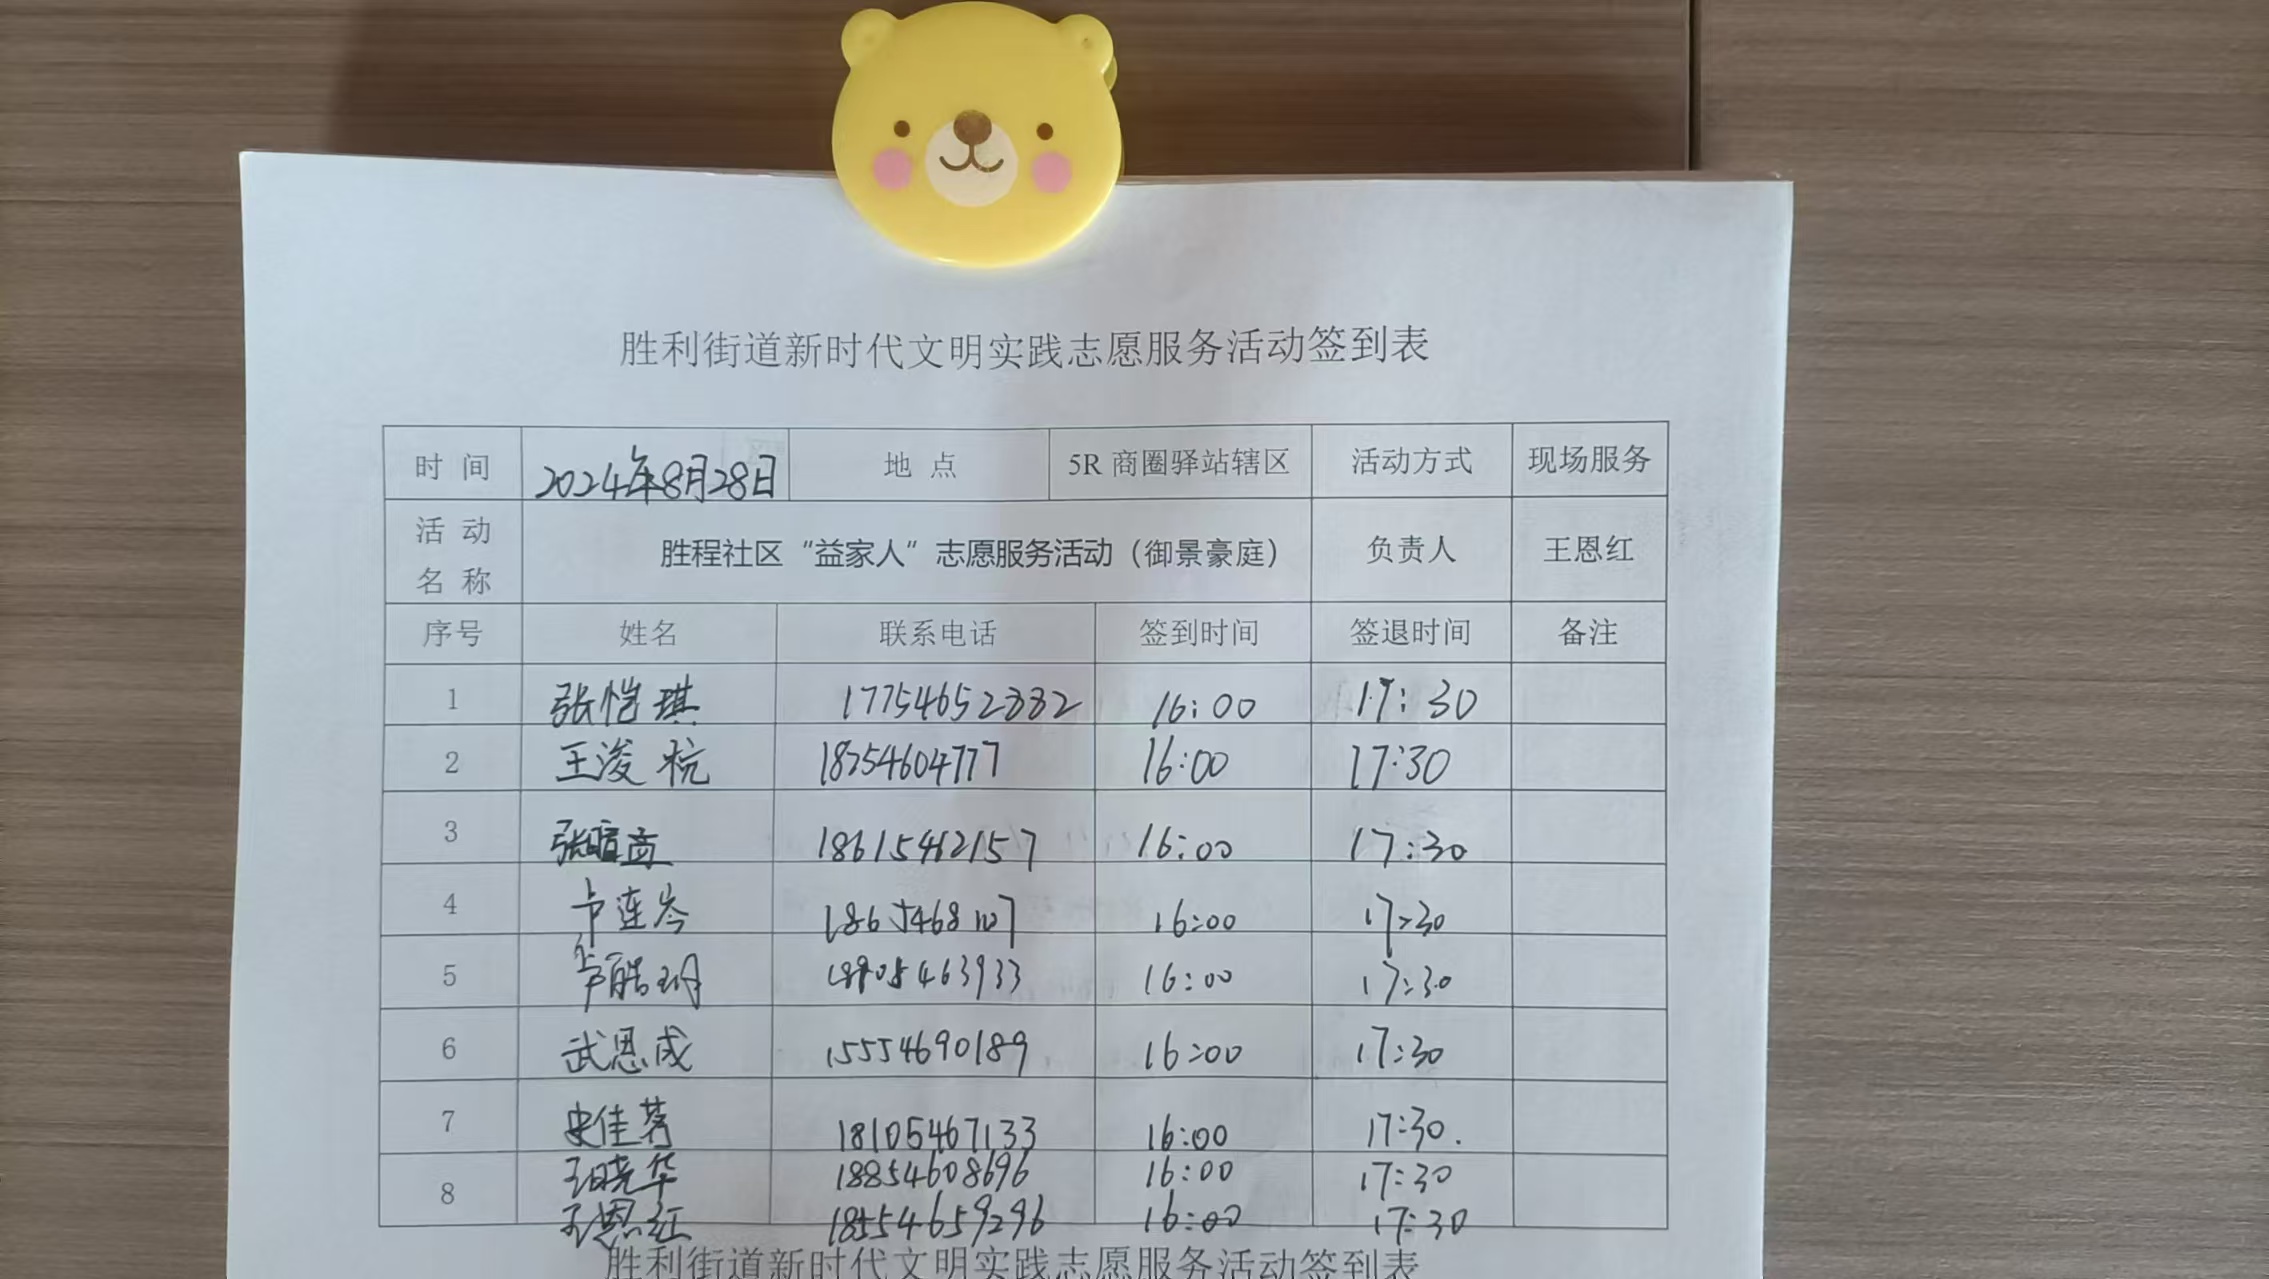 胜利街道新时代文明实践志愿服务活动签到表
时 间 2024年8月28日 地 点 5R 商圈驿站辖区 活动方式 现场服务
活 动 名 称 胜程社区“益家人”志愿服务活动（御景豪庭） 负责人 王恩红
序号 姓名 联系电话 签到时间 签退时间 备注
1 张恺琪 17754652882 16:00 17:30
2 王浚杭 18254604777 16:00 17:30
3 18615462157 16:00 17:30
4 卢连岑 16:00 17:30
5 16:00 17:30
6 武恩成 15554690189 16:00 17:30
7 18105467133 16:00 17:30.
8 王晓华 18854608696 16:00 17:30
王恩红 18554659296 16:00 17:30
胜利街道新时代文明实践志愿服务活动签到表